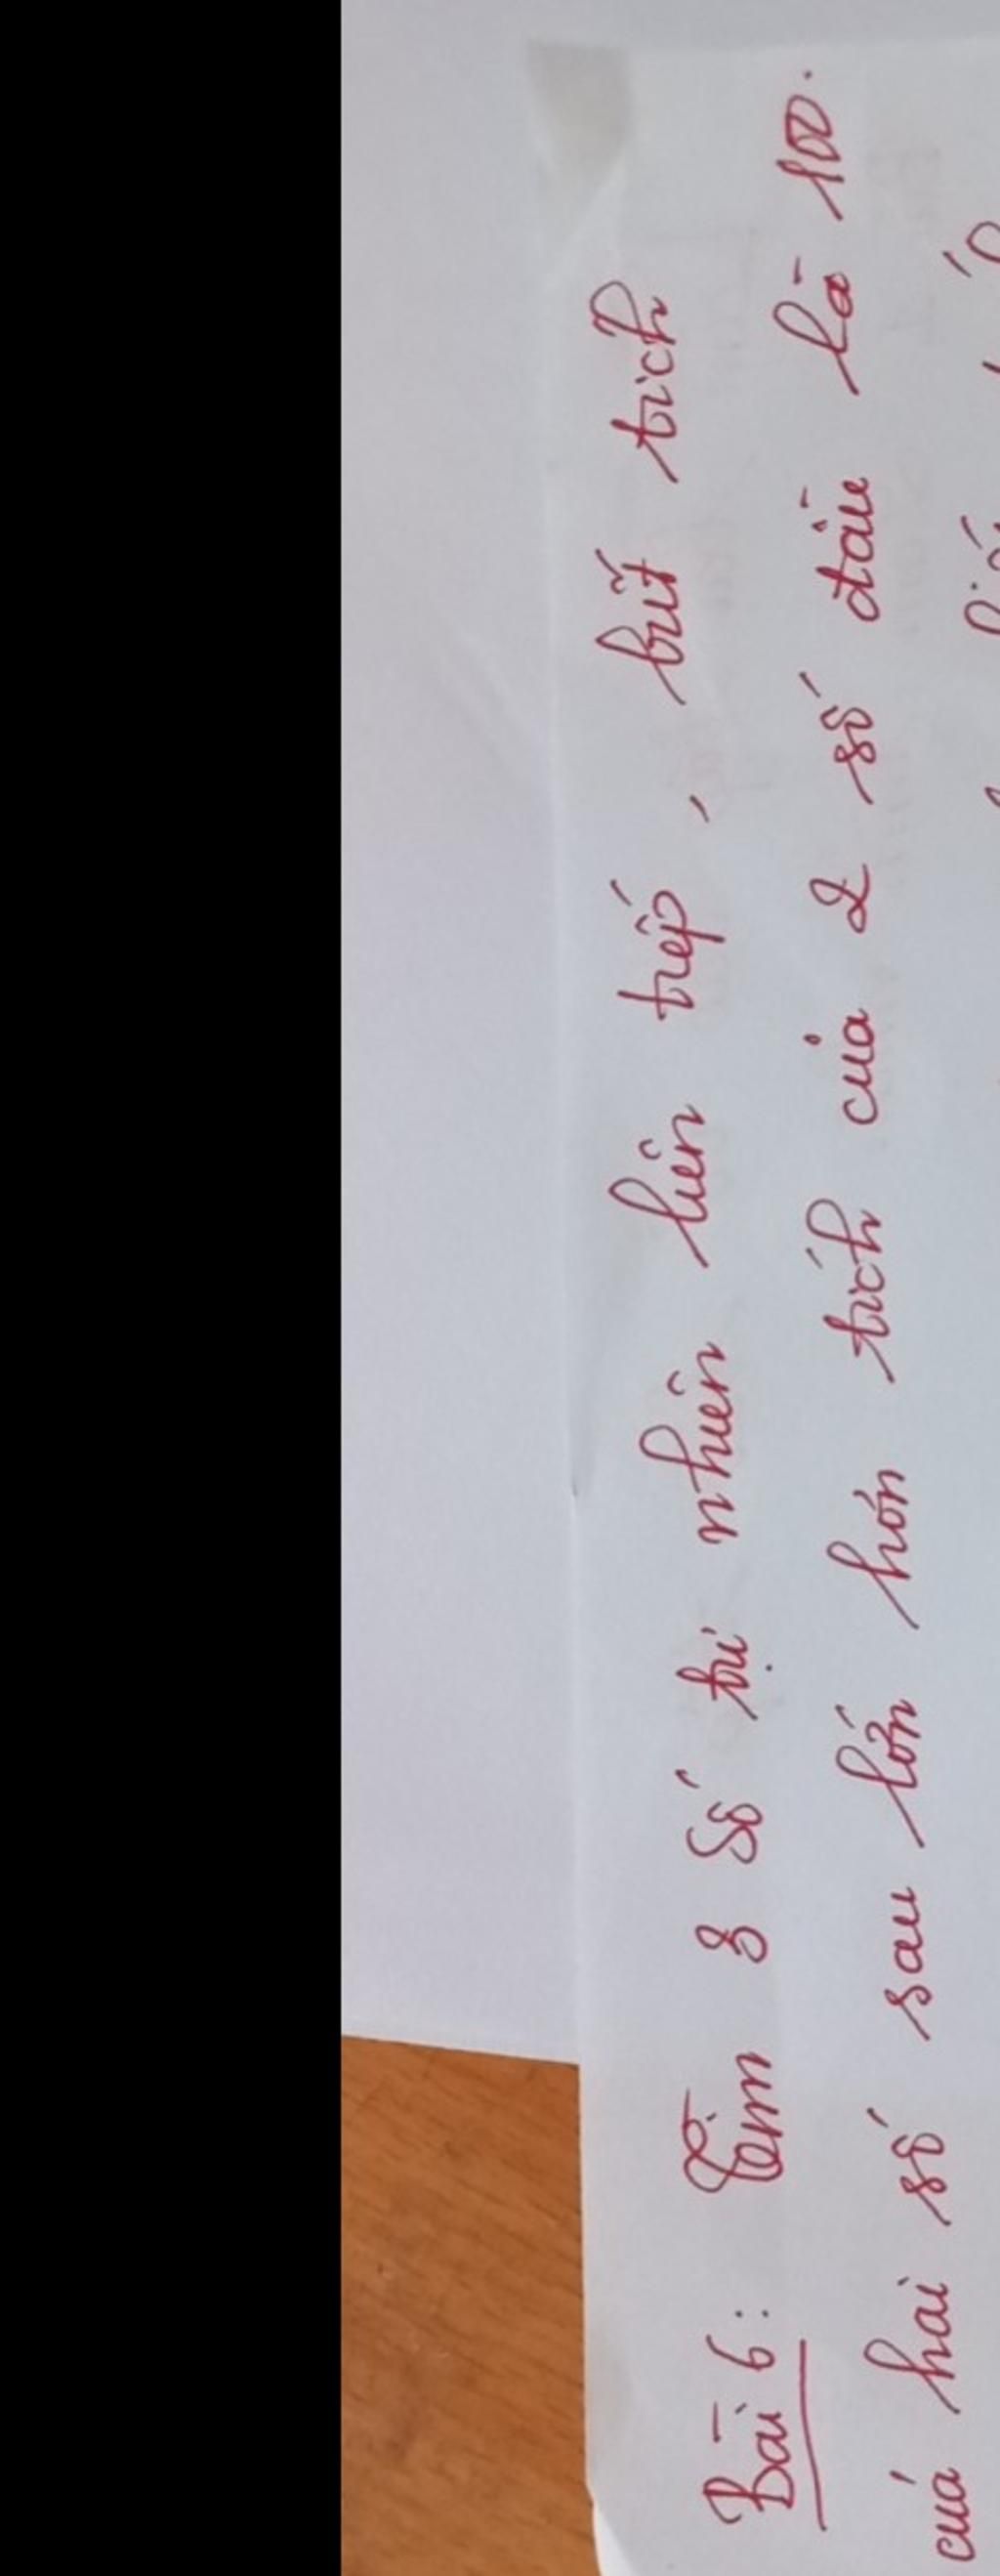 Bài 6: Tìm 3 số tự nhiên liên tiếp, biết tích
của hai số sau lớn hơn tích của 2 số đầu là 100.